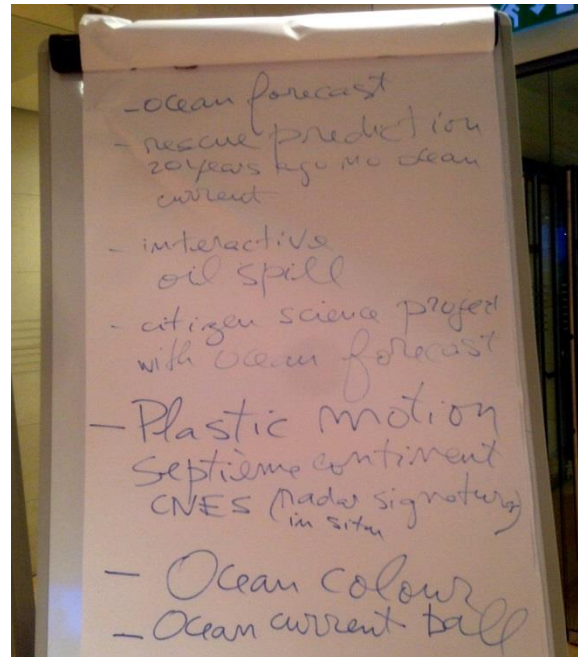 - ocean forecast
- rescue prediction
20 years ago no ocean
current
- interactive
oil spill
- citizen science project
with ocean forecast
- Plastic motion
septième continent
CNES (radar signature)
in situ
- Ocean colour
- Ocean current ball